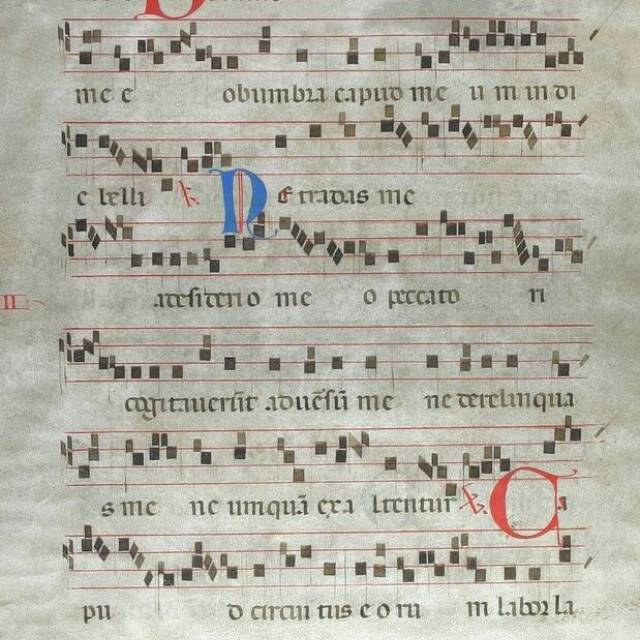 me e obumbra caput me um in di
e belli ℣. NE tradas me
a desiderio me o peccato ri
II
cogitaverūt adūesū me ne derelinqua
s me ne umquā exa ltentur ℣. Ca
pu d circui tus eorū m labor la